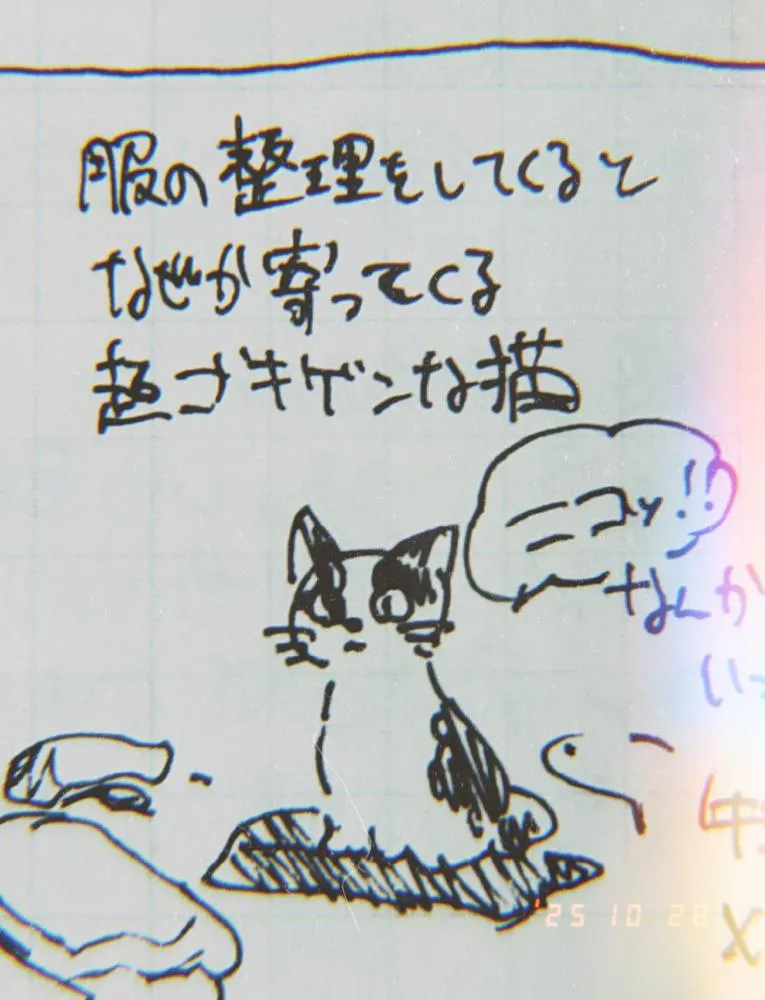 服の整理をしてくると
なぜか寄ってくる
超ゴキゲンな猫
ニコッ!!
なんか
いっ
'25 10 28